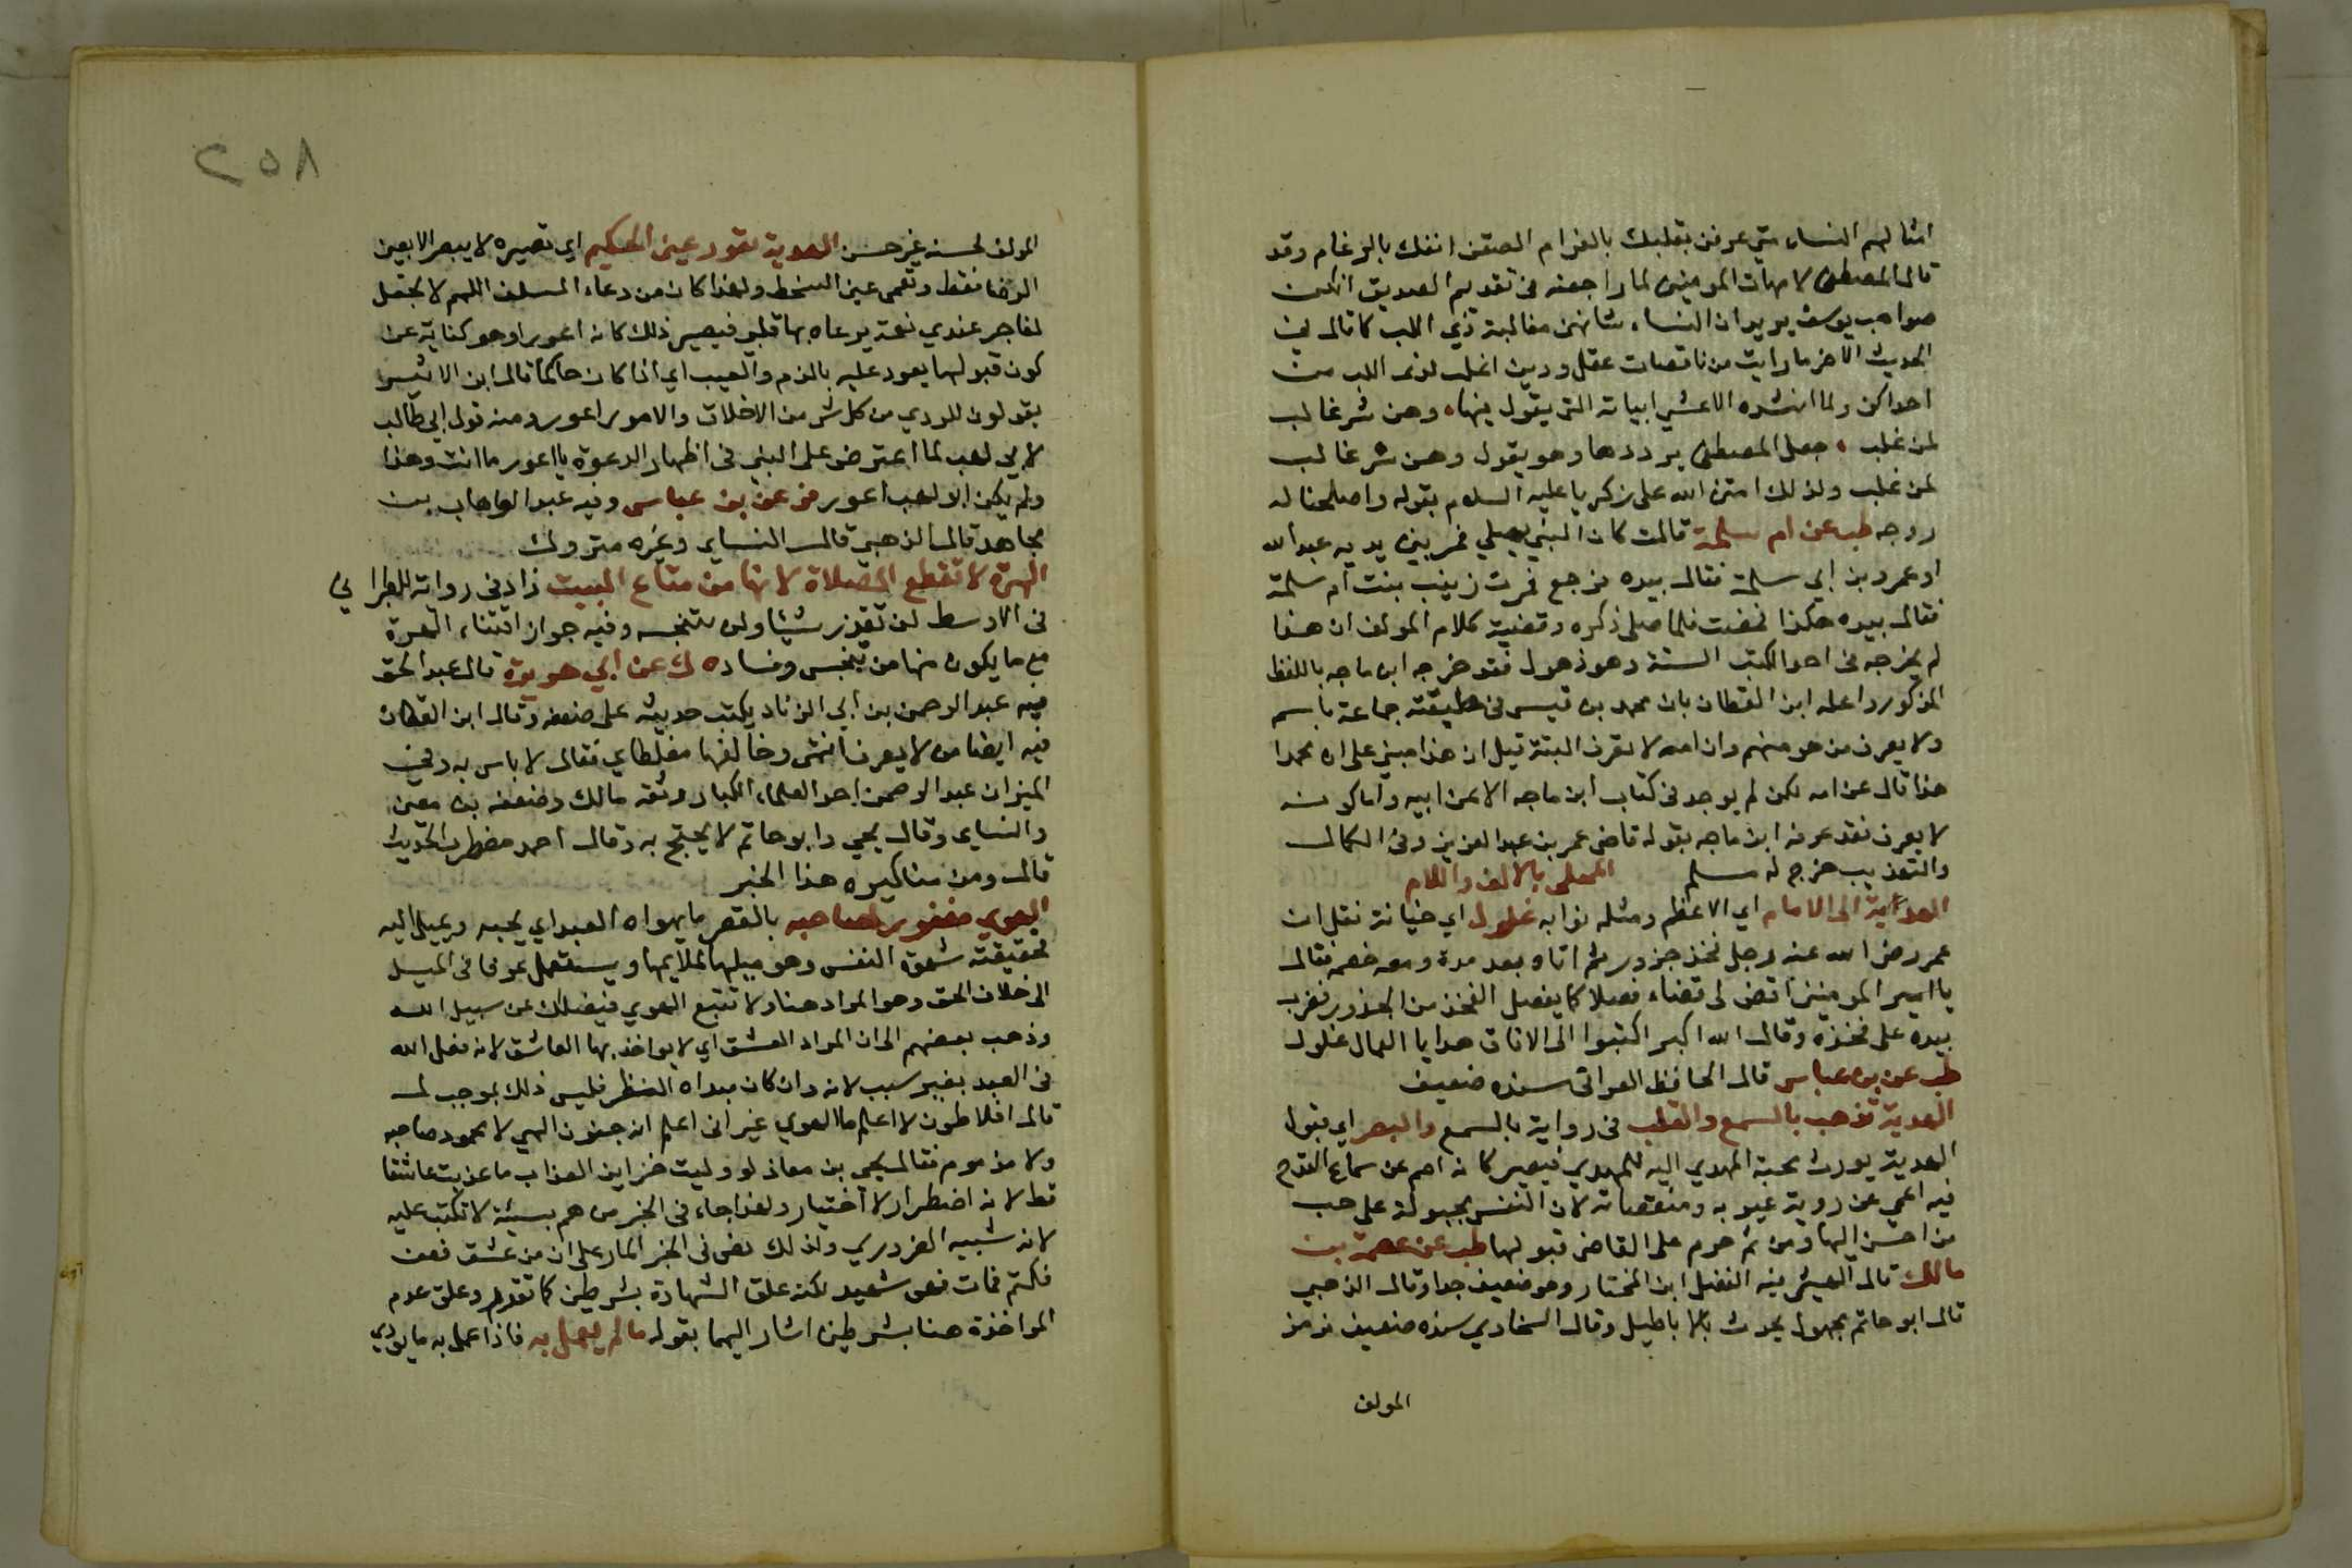 امثالهم النساء متى عرفن بقلبك بالغرام الصقن انفك بالرغام وقد
قال المصطفى لامهات المومنين لما راجعنه فى تقديم الصديق انكن
صواحب يوسف يريد ان النساء شانهن مغالبة ذي اللب كما قال في
الحديث الاخر ما رايت من ناقصات عقل ودين اغلب لذى اللب من
احداكن ولما انشده الاعشى ابياته التى يقول فيها، وهن شر غالب
لمن غلب ، جعل المصطفى يرددها وهو يقول وهن شر غالب
لمن غلب ولذلك امتن الله على زكريا عليه السلام بقوله واصلحنا له
زوجه طب عن ام سلمة قالت كان النبي يصلي فمر بين يديه عبد الله
او عمرو بن ابي سلمة فقال بيده فرجع فمرت زينب بنت ام سلمة
فقال بيده هكذا فمضت فلما صلى ذكره وقضية كلام المولف ان هذا
لم يخرجه فى احد الكتب الستة وهو ذهول فقد خرجه ابن ماجه باللفظ
المذكور واعله ابن القطان بان محمد بن قيس فى طبقته جماعة باسمه
ولا يعرف من هو منهم وان امه لا تعرف البتة قيل ان هذا مبني على ان محمدا
هذا قال عن امه لكن لم يوجد فى كتاب ابن ماجه الا عن ابيه واما كونه
لا يعرف فقد عرفه ابن ماجه بقوله قاضى عمر بن عبد العزيز وفى الكمال
والتهذيب خرج له مسلم المحلى بالالف واللام
الهدية الى الامام اي الاعظم ومثله نوابه غلول اي خيانة نقل ان
عمر رضى الله عنه رجل فخذ جزور ثم اتاه بعد مدة ومعه خصم فقال
يا امير المومنين اقض لى قضاء فصلا كما يفصل الفخذ من الجزور فضرب
بيده على فخذه وقال الله اكبر اكتبوا الى الافاق هدايا العمال غلول
طب عن بن عباس قال الحافظ العراقى سنده ضعيف
الهدية تذهب بالسمع والقلب فى رواية بالسمع والبصر اي قبول
الهدية يورث محبة المهدي اليه للمهدي فيصير كانه اصم عن سماع القدح
فيه اعمي عن روية عيوبه ومنقصاته لان النفس مجبولة على حب
من احسن اليها ومن ثم حرم على القاضى قبولها طب عن عصمة بن
مالك قال الهيثمى فيه الفضل ابن المختار وهو ضعيف جدا وقال الذهبي
قال ابو حاتم مجهول يحدث بالاباطيل وقال السخاوي سنده ضعيف فرمز
المولف
٢٥٨
المولف لحسنه غير حسن الهدية تعور عين الحكيم اي تصيره لا يبصر الا بعين
الرضا فقط وتعمى عين السخط ولهذا كان من دعاء السلف اللهم لا تجعل
لفاجر عندي نعمة يرعاه بها قلبي فيصير ذلك كانه اعور او هو كناية عن
كون قبولها يعود عليه بالذم والعيب اي اذا كان حاكما قال ابن الاثير
يقولون للردي من كل شى من الاخلاق والامور اعور ومنه قول ابي طالب
لابى لهب لما اعترض على النبي فى اظهار الدعوة يا اعور ما انت وهذا
ولم يكن ابو لهب اعور فر عن بن عباس وفيه عبد الوهاب بن
مجاهد قال الذهبي قال النساي وغيره متروك
الهرة لا تقطع الصلاة لانها من متاع البيت زاد فى رواته للطبرانى
فى الاوسط لن تقذر شيئا ولن تنجسه وفيه جواز اقتناء الهرة
مع ما يكون منها من تنجس وفساد ه ك عن ابي هريرة قال عبد الحق
فيه عبد الرحمن بن ابي الزناد يكتب حديثه على ضعفه وقال ابن القطان
فيه ايضا من لا يعرف انتهى وخالفها مغلطاي فقال لا باس به وفى
الميزان عبد الرحمن احد العلماء الكبار وثقه مالك وضعفه بن معين
والنساى وقال يحي وابو حاتم لا يحتج به وقال احمد مضطرب الحديث
قال ومن مناكيره هذا الخبر
الهوي مغفور لصاحبه بالقصر ما يهواه العبد اي يحبه ويميل اليه
فحقيقته شهوة النفس وهو ميلها لملايمها ويستعمل عرفا فى الميل
الى خلاف الحق وهو المراد هنا ولا تتبع الهوي فيضلك عن سبيل الله
وذهب بعضهم الى ان المراد العشق اي لا يواخذ بها العاشق لانه فعل الله
فى العبد بغير سبب لانه وان كان مبداه النظر فليس ذلك بموجب له
قال افلاطون لا اعلم ما الهوي غير انى اعلم انه جنون الهي لا محمود صاحبه
ولا مذموم فقال يحيى بن معاذ لو وليت خزاين العذاب ما عذبت عاشقا
قط لانه اضطرار لا اختيار ولهذا جاء فى الخبر من هم بسيئة لا تكتب عليه
لانه شبيه الضروري ولذلك نص فى الخبر المار على ان من عشق فعف
فكتم فمات فهو شهيد لكنه علق الشهادة بشرطين كما تقدم وعلق عدم
المواخذة هنا بشرطين اشار اليهما بقوله ما لم يعمل به فاذا عمل به ما يودي